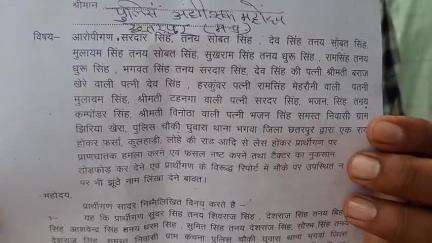 श्रीमान पुलिस अधीक्षक महोदय
छतरपुर (म-प्र)
विषय– आरोपीगण सरदार सिंह, तनय सोबत सिंह , देव सिंह तनय सोबत सिंह,
मुलायम सिंह तनय सोबत सिंह, सुखराम सिंह तनय धुरू सिंह , रामसिंह तनय
धुरू सिंह , भगवत सिंह तनय सरदार सिंह, देव सिंह की पत्नी श्रीमती बराज
खेरे वाली पत्नी देव सिंह , हरकुवर पत्नी रामसिंह मेहरौनी वाली पत्नी
मुलायम सिंह, श्रीमती टहनगा वाली पत्नी सरदार सिंह, भजन सिंह तनय
कम्पोडर सिंह, श्रीमती विनोठा वाली पत्नी भजन सिंह समस्त निवासी ग्राम
झिरिया खेरा, पुलिस चौकी घुवारा थाना भगवा जिला छतरपुर द्वारा एक राय
होकर फर्सा, कुलहाडी, लोहे की राड आदि से लेस होकर प्रार्थीगण पर
प्राणघातक हमला करने एवं फसल नष्ट करने तथा टैक्टर का नुकसान
तोडफोड कर देने एवं प्रार्थीगण के विरूद्ध रिपोर्ट में मौके पर उपस्थित न
पर भी झूठे नाम लिखा देने बावत।
महोदय,
प्रार्थीगण सादर निम्नलिखित विनय करते है –
1- यह कि प्रार्थीगण सुंदर सिंह तनय शिवराज सिंह , देशराज सिंह तनय
सिंह तनय धरम सिंह , सुमित सिंह तनय देशराज सिंह,
देशराज सिंह समस्त निवासी ग्राम पुलिस चौकी घुवारा थाना भगवा जिला